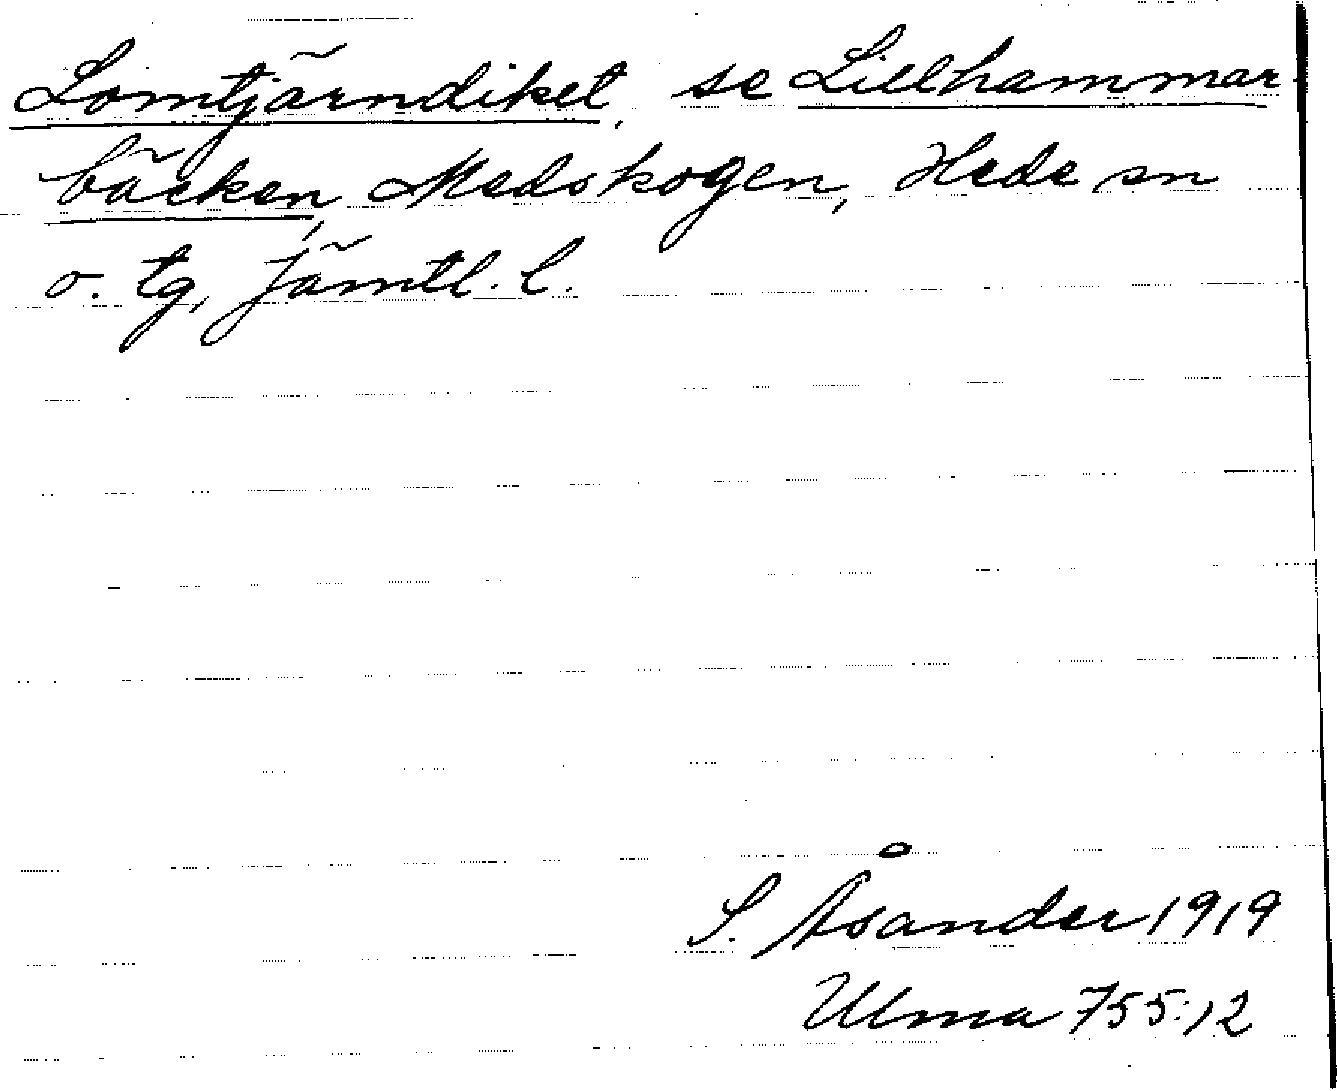 Lomtjärndiket, se Lillhammar-
bäcken, Medskogen, Hede sn
o. tg, Jämtl. l.
S. Åsander 1919
Ulma 755:12